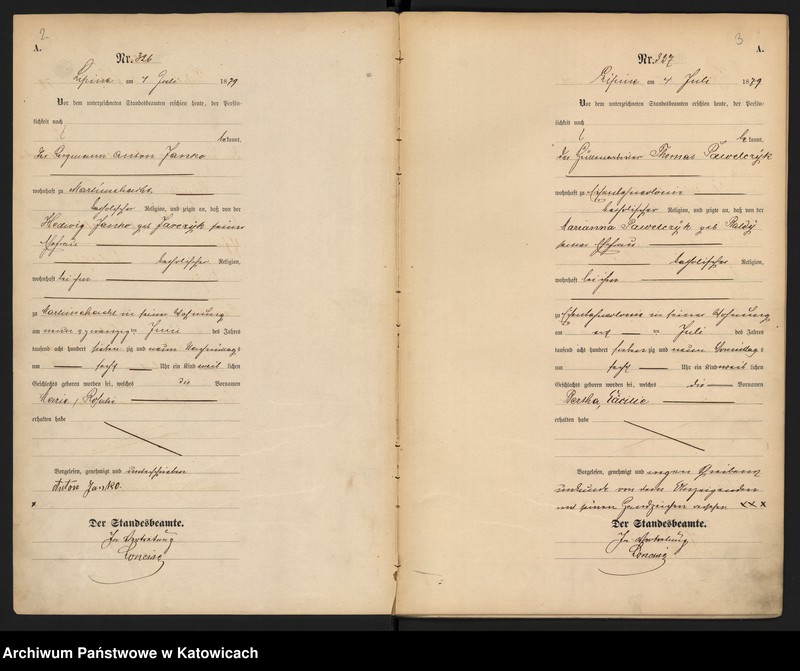 2
A.
Nr. 326
Lipine am 4 Juli 1879
Vor dem unterzeichneten Standesbeamten erschien heute, der Persön-
lichkeit nach
bekannt,
der Bergmann Anton Janko
wohnhaft zu
katholischer Religion, und zeigte an, daß von der
Hedwig Janko geb Jarczyk seiner
Ehefrau
katholischer Religion,
wohnhaft bei ihm
zu in seiner Wohnung
am neun u zwanzig ten Juni des Jahres
tausend acht hundert sieben zig und neun Nachmittags
um sechs Uhr ein Kind weiblichen
Geschlechts geboren worden sei, welches die Vornamen
Marie, Rosalie
erhalten habe
Vorgelesen, genehmigt und unterschrieben
Anton Janko.
Der Standesbeamte.
In Vertretung
3
A.
Nr. 327
Lipine am 4 Juli 1879
Vor dem unterzeichneten Standesbeamten erschien heute, der Persön-
lichkeit nach
bekannt,
der Hüttenarbeiter Thomas Pawelczyk
wohnhaft zu
katholischer Religion, und zeigte an, daß von der
Marianna Pawelczyk geb
seiner Ehefrau
katholischer Religion,
wohnhaft bei ihm
zu in seiner Wohnung
am ten Juli des Jahres
tausend acht hundert sieben zig und neun Vormittags
um sechs Uhr ein Kind weiblichen
Geschlechts geboren worden sei, welches die Vornamen
Bertha, Cäcilie
erhalten habe
Vorgelesen, genehmigt und wegen Schreibens
unkunde von dem Anzeigenden
mit seinen Handzeichen versehen xxx
Der Standesbeamte.
In Vertretung
Archiwum Państwowe w Katowicach